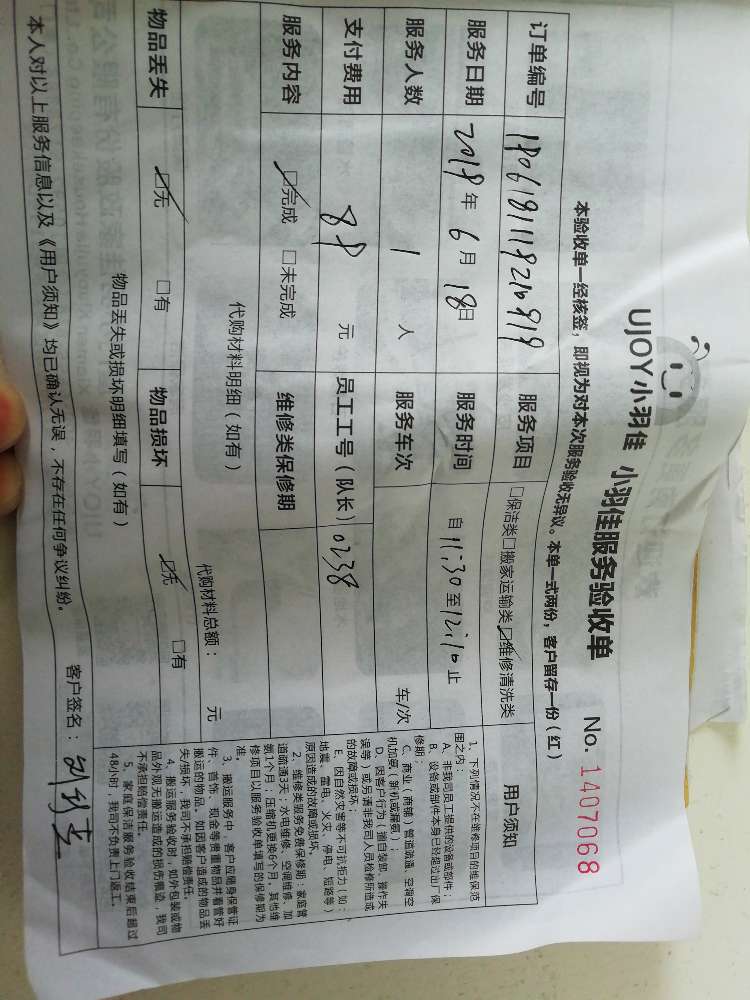 UJOY小羽佳 小羽佳服务验收单 No. 1407068
本验收单一经核签，即视为对本次服务验收无异议。本单一式两份，客户留存一份（红）
订单编号 服务项目 □保洁类□搬家运输类☑维修清洗类
服务日期 2018年6月18日 服务时间 自11:30至12:10止
服务人数 1人 服务车次 车/次
支付费用 89元 员工工号（队长）0238
服务内容 ☑完成 □未完成 维修类保修期
代购材料明细（如有）
代购材料总额： 元
物品丢失 ☑无 □有 物品损坏 ☑无 □有
物品丢失或损坏明细填写（如有）
本人对以上服务信息以及《用户须知》均已确认无误，不存在任何争议纠纷。
客户签名：
用户须知
1、下列情况不在维修项目的维保范
围之内：
A、非我司员工提供的设备或部件；
B、设备或部件本身已经超过出厂保
修期；
C、商业（商铺）管道疏通、空调空
机加氨（新机或漏氨）；
D、因客户行为：擅自装卸、操作失
误等）或另请非我司人员检修所造成
的故障或损坏；
E、因自然灾害等不可抗拒力（如：
地震、雷电、火灾、停电、短路等）
原因造成的故障或损坏。
2、维修类服务免费保修期：家庭管
道疏通3天；水电维修、空调维修、加
氨1个月；压缩机更换6个月，其他维
修项目以服务验收单填写的保修期为
准。
3、搬运服务中，客户应随身保管证
件、首饰、现金等贵重物品并看管好
搬运的物品。如因客户造成的物品丢
失/损坏，我司不承担赔偿责任。
4、搬运服务验收时，如外包装或物
品外观无搬运造成的损伤痕迹，我司
不承担赔偿责任。
5、家庭保洁服务验收结束后超过
48小时，我司不负责上门返工。